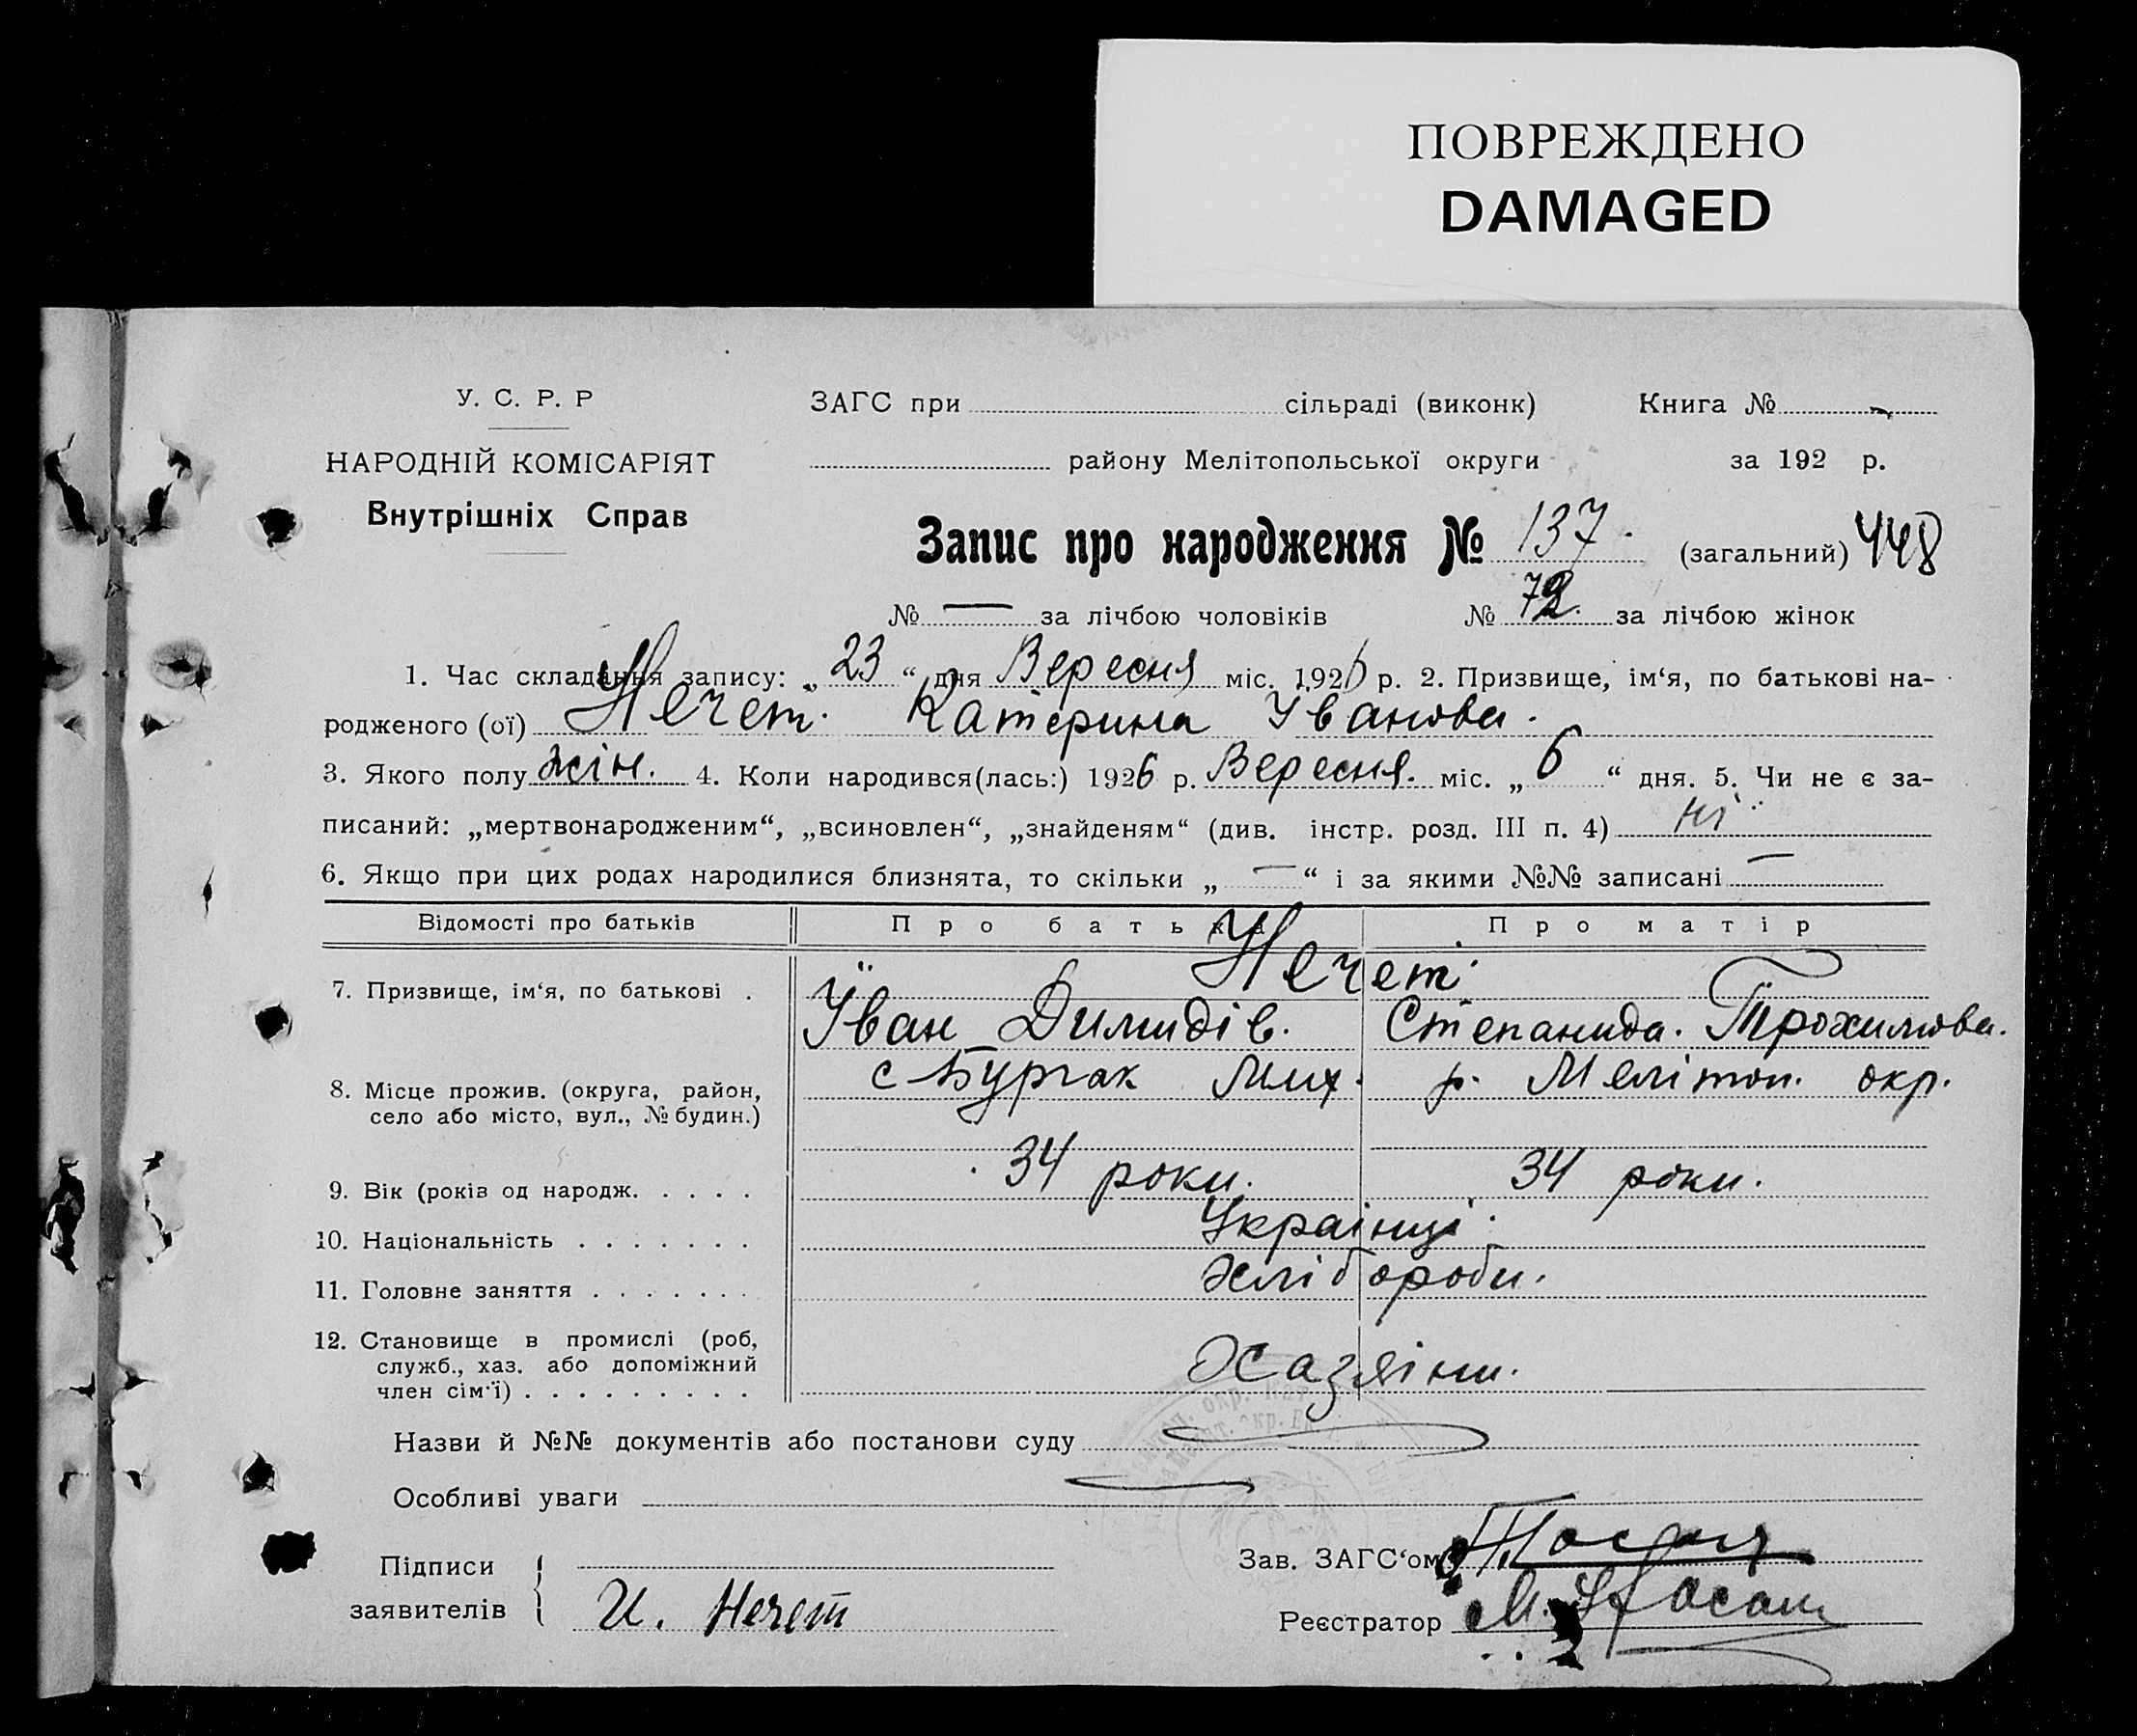 ПОВРЕЖДЕНО
DAMAGED
У. С. Р. Р
ЗАГС при сільраді (виконк) Книга №
НАРОДНІЙ КОМІСАРІЯТ
району Мелітопольської округи за 192 р.
Внутрішніх Справ
Запис про народження № 137. (загальний) 448
№ — за лічбою чоловіків № 72. за лічбою жінок
1. Час складання запису: „23“ дня Вересня міс. 1926 р. 2. Призвище, ім‘я, по батькові на-
родженого (ої) Нечет. Катерина Іванова.
3. Якого полу жін. 4. Коли народився(лась:) 1926 р. Вересня. міс. „6“ дня. 5. Чи не є за-
писаний: „мертвонародженим“, „всиновлен“, „знайденям“ (див. інстр. розд. III п. 4) ні
6. Якщо при цих родах народилися близнята, то скільки „—“ і за якими №№ записані —
Відомості про батьків Про батька Про матір
Нечет.
7. Призвище, ім‘я, по батькові .
Іван Димидів. Степанида. Трохимова.
8. Місце прожив. (округа, район,
село або місто, вул., № будин.)
с Бургак Мих. р. Мелітоп. окр.
9. Вік (років од народж. . . . . 34 роки. 34 роки.
10. Національність . . . . . . . Українці.
11. Головне заняття . . . . . . . Хлібороби.
12. Становище в промислі (роб,
служб., хаз. або допоміжний
член сім‘ї) . . . . . . . . . Хазяіни.
Назви й №№ документів або постанови суду
Особливі уваги
Підписи
заявителів И. Нечет
Зав. ЗАГС‘ом
Реєстратор